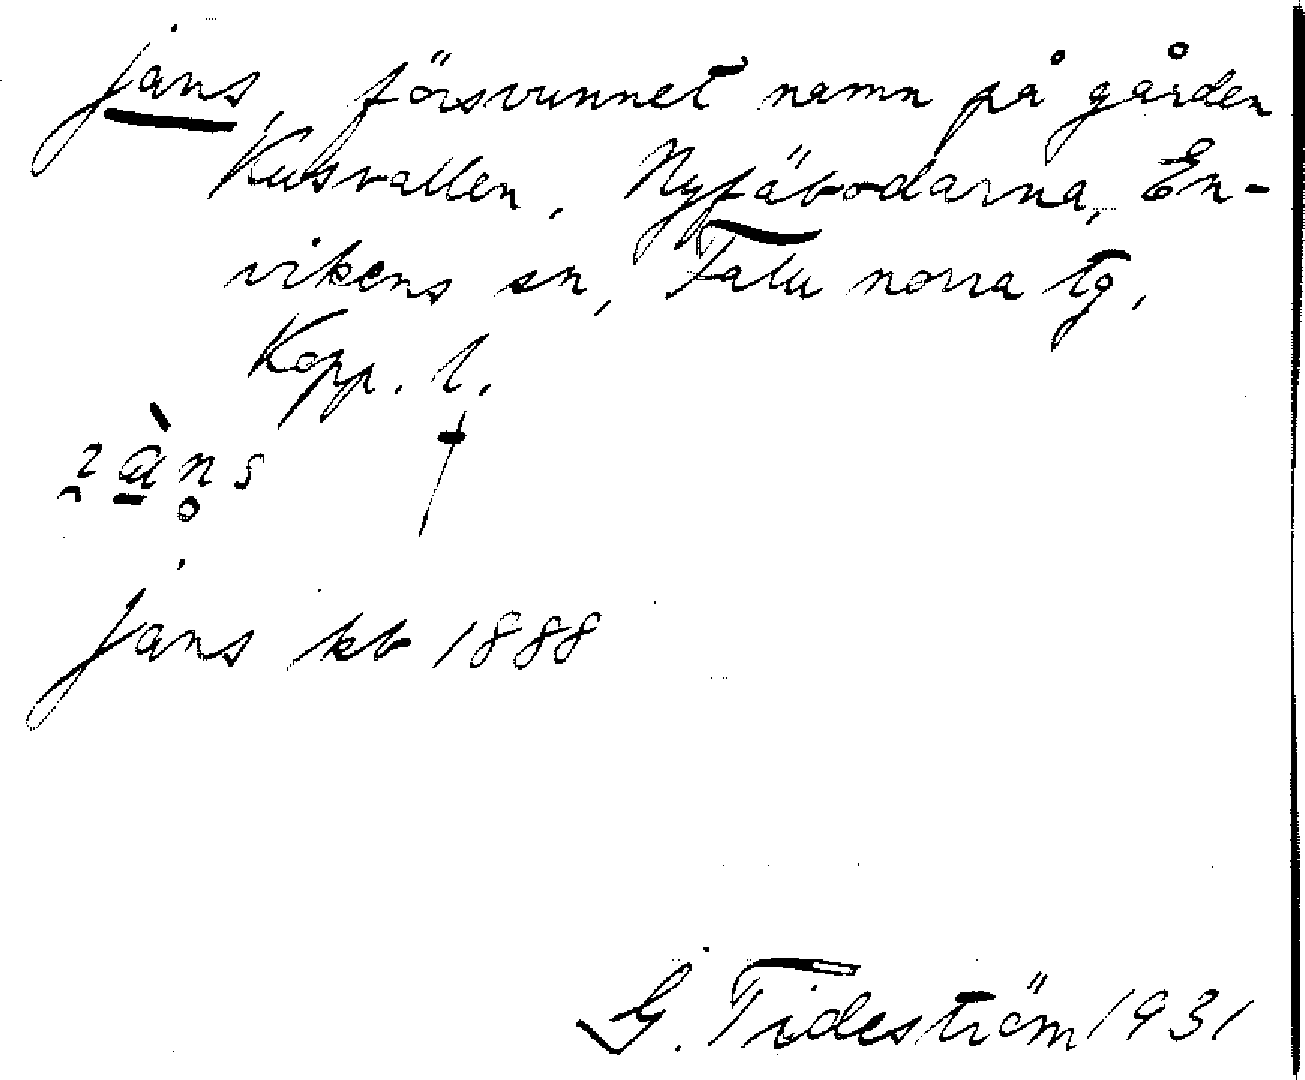 Jans, försvunnet namn på gården
Kusvallen, Nyfäbodarna, En-
vikens sn, Falu norra tg,
Kopp. l.
Jans kb 1888
G. Tideström 1931